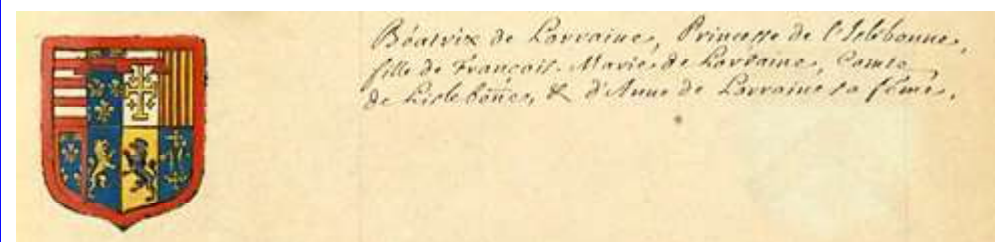 Béatrix de Lorraine, Princesse de l'Islebonne,
fille de François-Marie de Lorraine, Comte
de Lislebōñe, & d'Anne de Lorraine sa fēme.